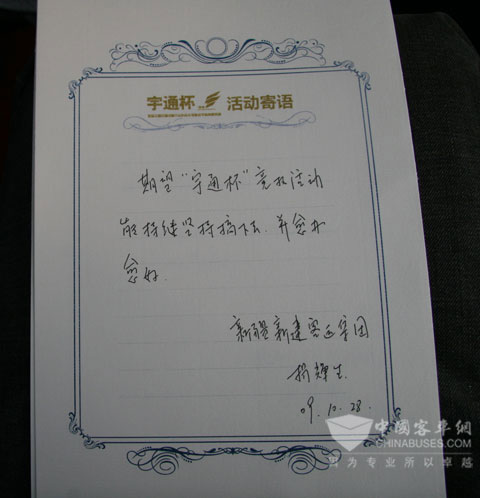 宇通杯 活动寄语
期望“宇通杯”竞技活动
能持继坚持搞下去，并愈办
愈好.
新疆新建客运集团
杨辉生
09.10.28.
中國客車網
CHINABUSES.COM
因为专业所以卓越